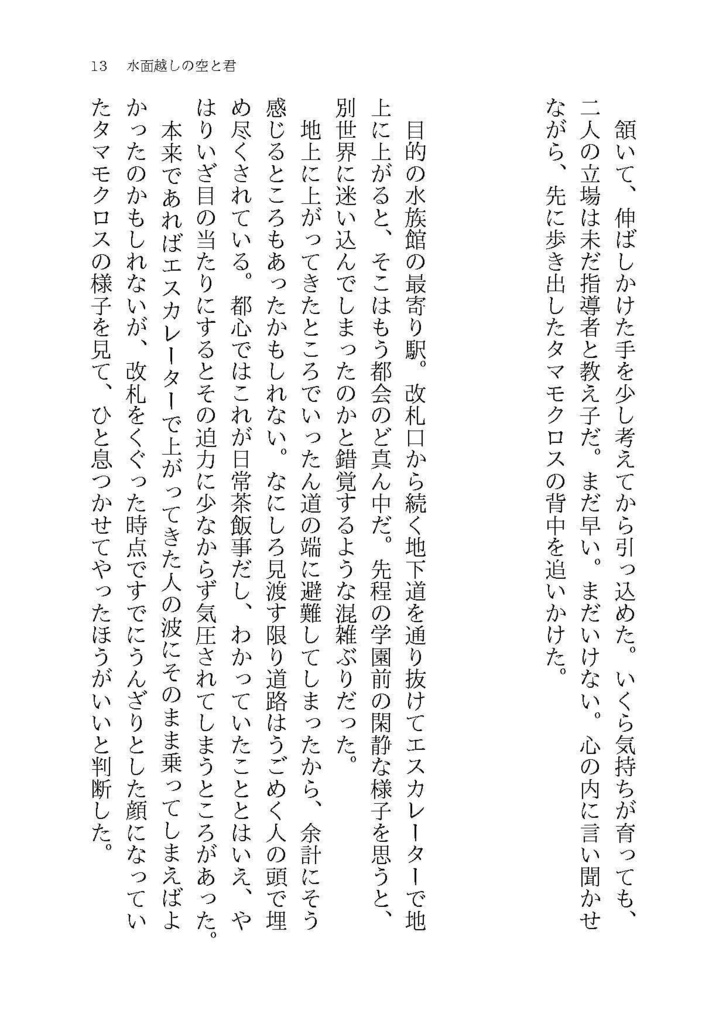 13　水面越しの空と君
　頷いて、伸ばしかけた手を少し考えてから引っ込めた。いくら気持ちが育っても、
二人の立場は未だ指導者と教え子だ。まだ早い。まだいけない。心の内に言い聞かせ
ながら、先に歩き出したタマモクロスの背中を追いかけた。
　目的の水族館の最寄り駅。改札口から続く地下道を通り抜けてエスカレーターで地
上に上がると、そこはもう都会のど真ん中だ。先程の学園前の閑静な様子を思うと、
別世界に迷い込んでしまったのかと錯覚するような混雑ぶりだった。
　地上に上がってきたところでいったん道の端に避難してしまったから、余計にそう
感じるところもあったかもしれない。なにしろ見渡す限り道路はうごめく人の頭で埋
め尽くされている。都心ではこれが日常茶飯事だし、わかっていたこととはいえ、や
はりいざ目の当たりにするとその迫力に少なからず気圧されてしまうところがあった。
　本来であればエスカレーターで上がってきた人の波にそのまま乗ってしまえばよ
かったのかもしれないが、改札をくぐった時点ですでにうんざりとした顔になってい
たタマモクロスの様子を見て、ひと息つかせてやったほうがいいと判断した。